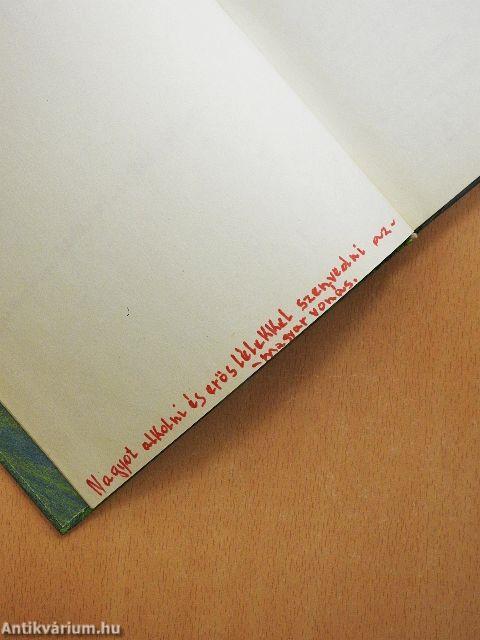 Nagyot alkotni és erős lélekkel szenvedni az-
-magyar vonás.
Antikvárium.hu